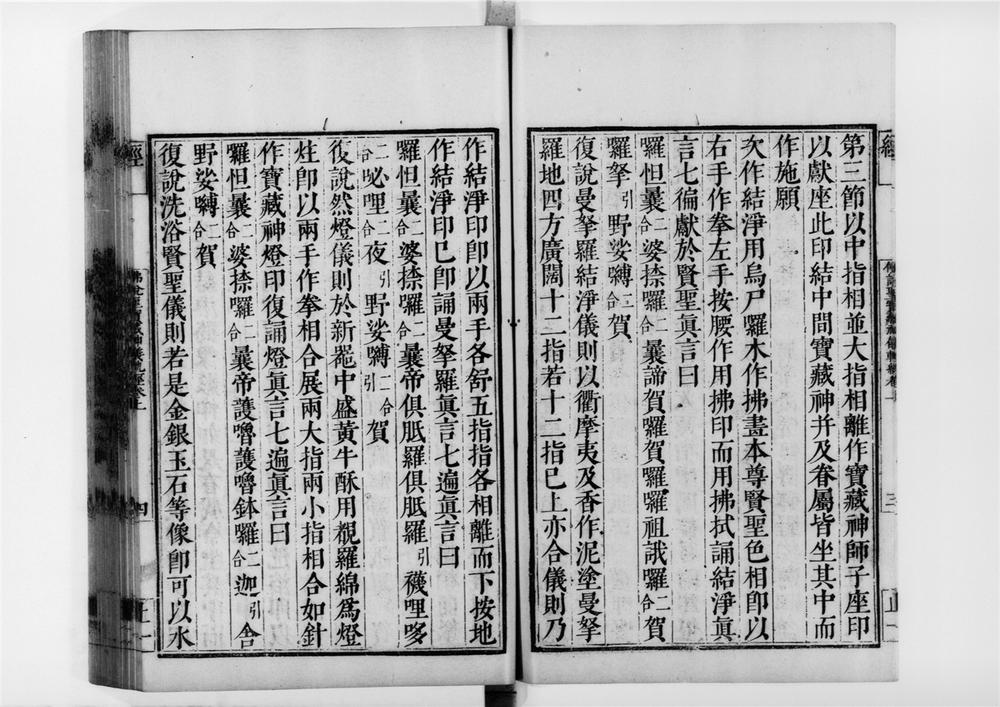 第三節以中指相並大指相離作寶藏神師子座印
以獻座此印結中間寶藏神并及眷屬皆坐其中而
作施願
次作結淨用烏尸囉木作拂畫本尊賢聖色相卽以
右手作拳左手按腰作用拂印而用拂拭誦結淨眞
言七徧獻於賢聖眞言曰
囉怛曩二合婆捺囉二合曩諦賀囉賀囉囉祖誐囉二合賀
囉拏引野娑嚩二合賀
復說曼拏羅結淨儀則以衢摩夷及香作泥塗曼拏
羅地四方廣闊十二指若十二指已上亦合儀則乃
作結淨印卽以兩手各舒五指指各相離而下按地
作結淨印已卽誦曼拏羅眞言七遍眞言曰
囉怛曩二合婆捺囉二合曩帝俱胝羅俱胝羅引襪哩哆
二合必哩二合夜引野娑嚩二合引賀
復說然燈儀則於新器中盛黃牛酥用覩羅綿爲燈
炷卽以兩手作拳相合展兩大指兩小指相合如針
作寶藏神燈印復誦燈眞言七遍眞言曰
囉怛曩二合婆捺囉二合曩帝護嚕護嚕鉢囉二合迦引舍
野娑嚩二合賀
復說洗浴賢聖儀則若是金銀玉石等像卽可以水
經
四
經
三